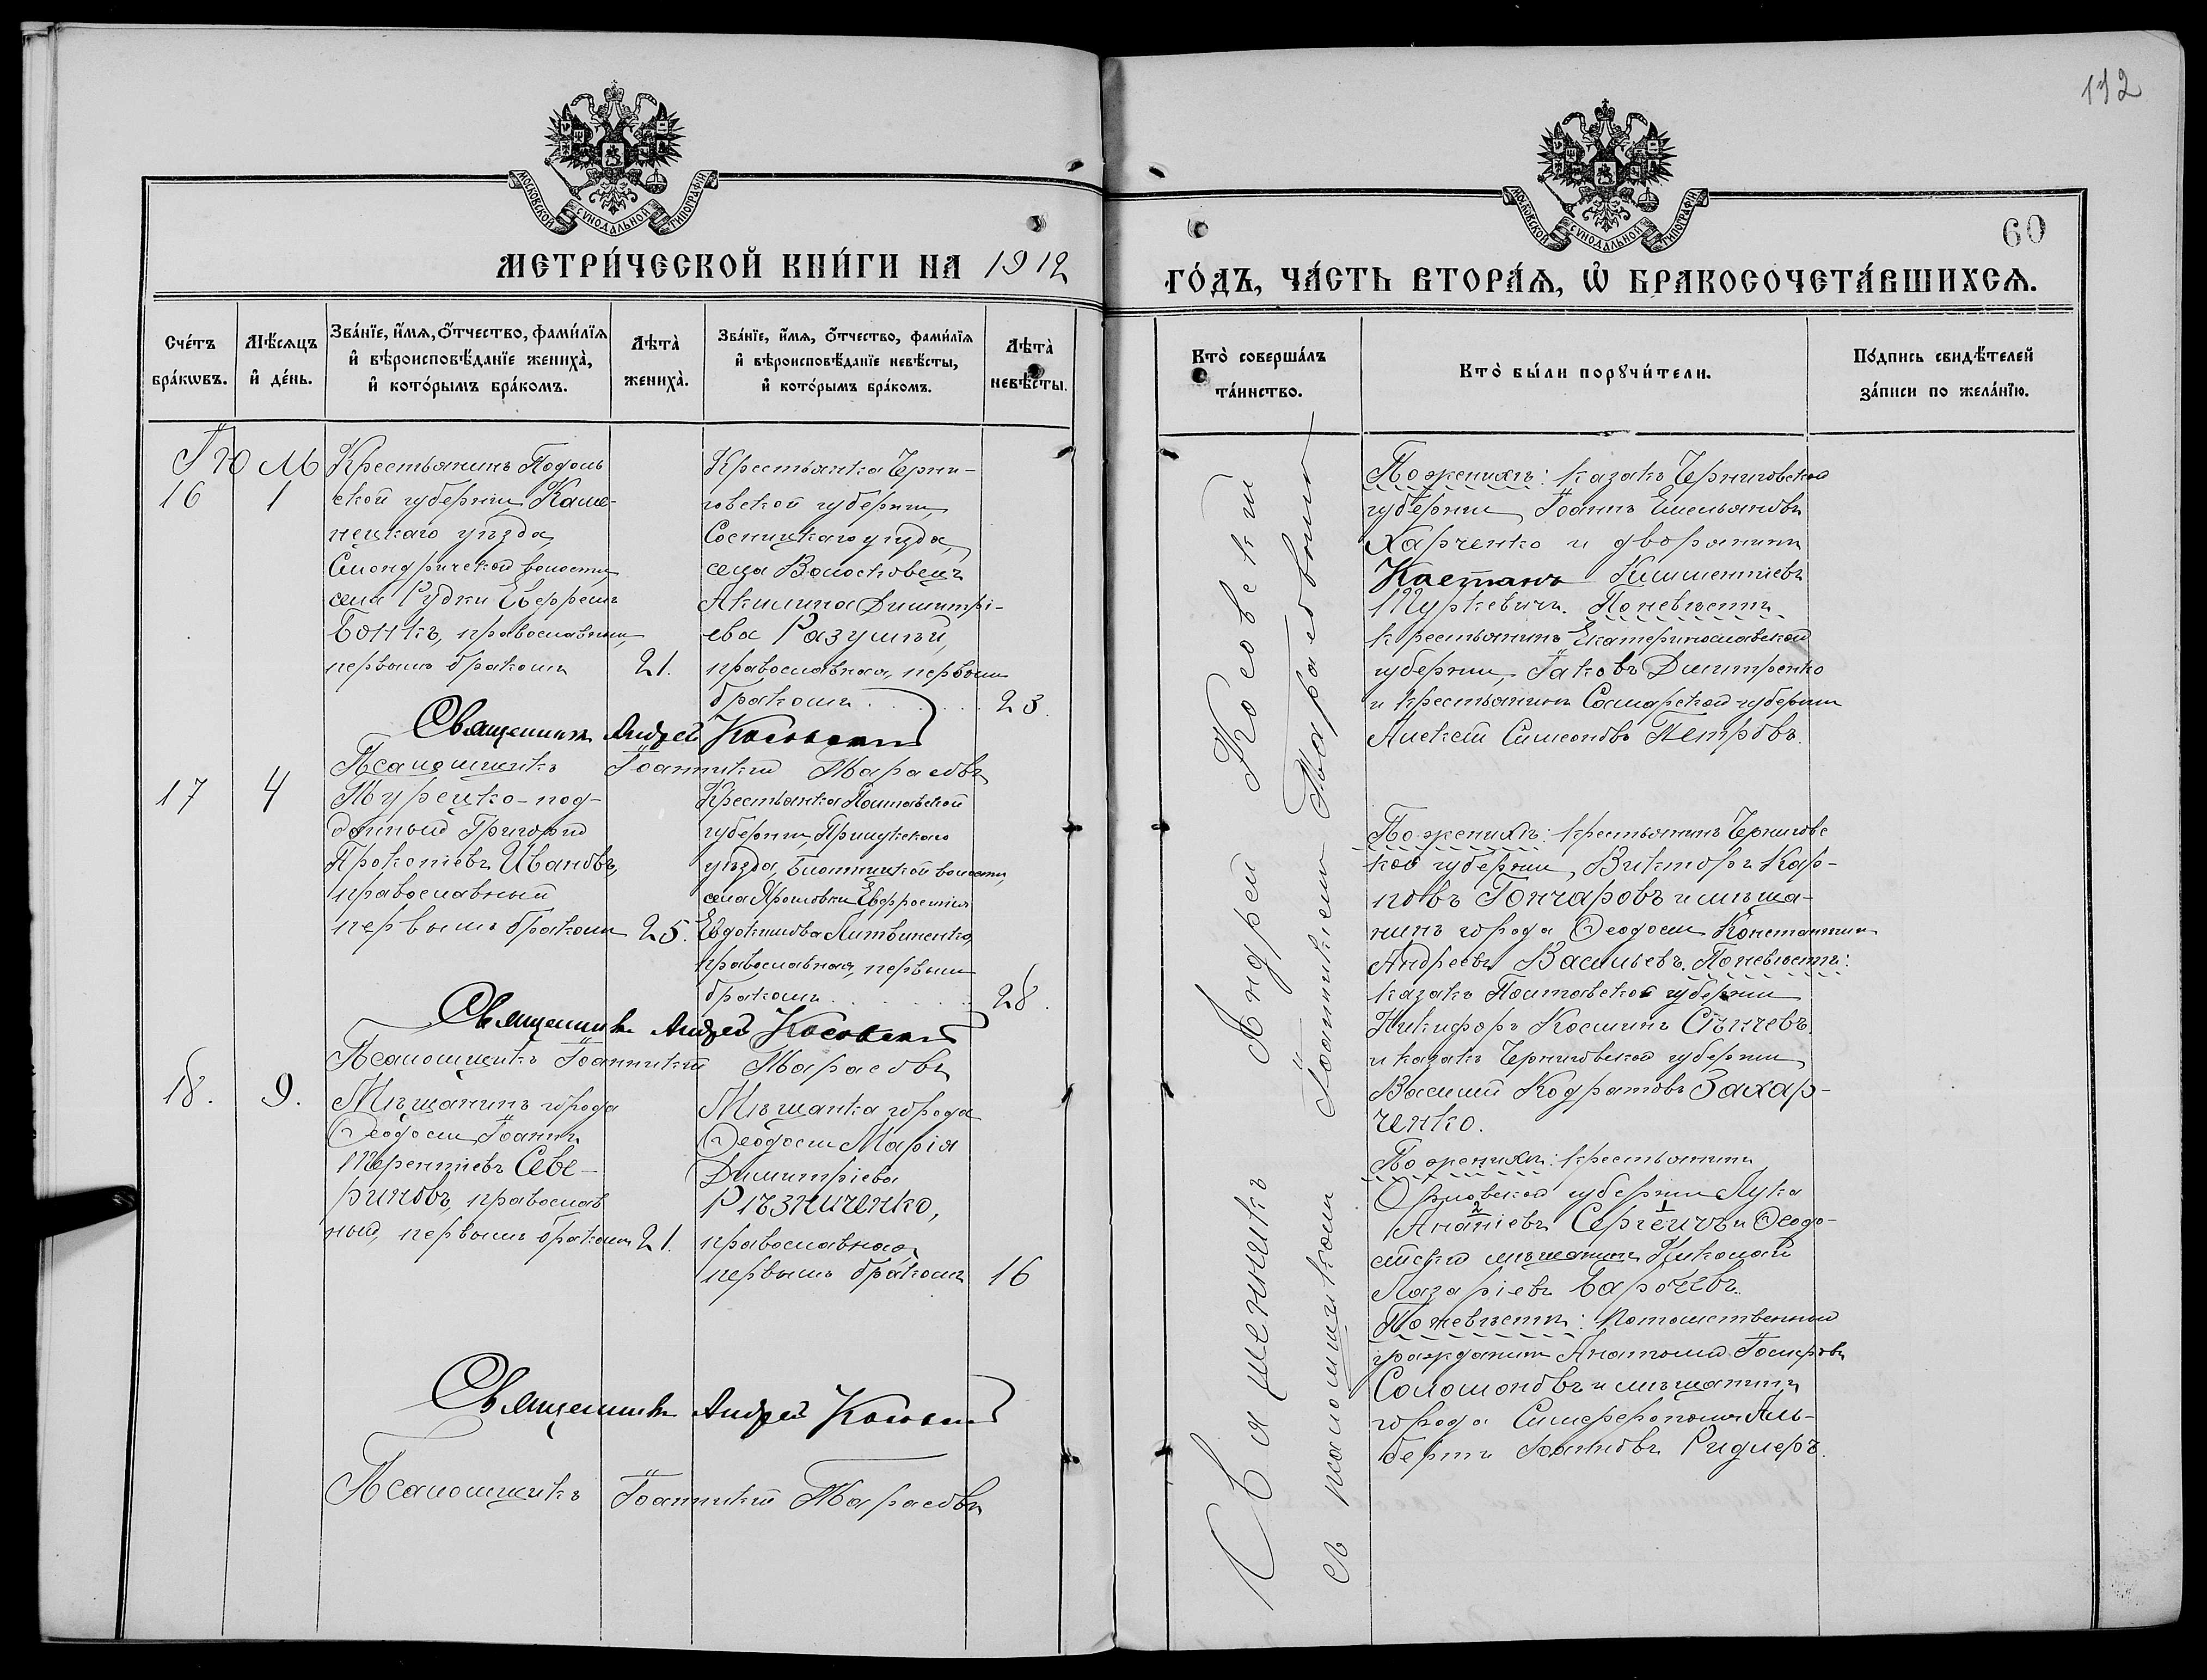 МОСКОВСКОЙ СѴНОДАЛЬНОЙ ТИПОГРАФІИ
МЕТРИ́ЧЕСКОЙ КНИ́ГИ НА 1912
Сче́тъ бра́кѡвъ.
Мѣ́сяцъ и҆ де́нь.
Зва́нїе, и҆́мя, ѻ҆́тчество, фами́лїя
и҆ вѣроисповѣ́данїе жениха̀,
и҆ кото́рымъ бра́комъ.
Лѣта̀ жениха̀.
Зва́нїе, и҆́мя, ѻ҆́тчество, фами́лїя
и҆ вѣроисповѣ́данїе невѣ́сты,
и҆ кото́рымъ бра́комъ.
Лѣта̀ невѣ́сты.
Іюль
16
1
Крестьянинъ Подоль
ской губерніи Каме-
нецкаго уѣзда,
Смотрической волости
села Рудки Евфремъ
православный,
первымъ бракомъ
21.
Крестьянка Черни-
говской губерніи,
Сосницкаго уѣзда,
села Волосковецъ
Акилина Димитрі-
ева Разумѣй,
православная, первымъ
бракомъ
23.
Священникъ Андрей Косовскій
Псаломщикъ Іоанникій Тарасовъ
17
4
Турецко-под-
данный Григорій
Прокопіевъ Ивановъ,
православный
первымъ бракомъ
25.
Крестьянка Полтавской
губерніи, Прилукскаго
уѣзда, волости,
села Евфросинія
Евдокимова Литвиненко,
православная, первымъ
бракомъ
28.
Священникъ Андрей Косовскій
Псаломщикъ Іоанникій Тарасовъ
18.
9.
Мѣщанинъ города
Ѳеодосіи Іоаннъ
Терентіевъ Севе-
риновъ, православ
ный, первымъ бракомъ
21.
Мѣщанка города
Ѳеодосіи Марія
Димитріева
Рѣзниченко,
православная,
первымъ бракомъ
16
Священникъ Андрей Косовскій
Псаломщикъ Іоанникій Тарасовъ
112
МОСКОВСКОЙ СѴНОДАЛЬНОЙ ТИПОГРАФІИ
60
ГО́ДЪ, ЧА́СТЬ ВТОРА́Я, Ѽ БРАКОСОЧЕТА́ВШИХСЯ.
Кто̀ соверша́лъ
та́инство.
Кто̀ бы́ли порꙋчи́тели.
По́дпись свидѣ́телей
за́писи по жела́нїю.
Священникъ Андрей Косовскій
съ псаломщикомъ Іоанникіемъ Тарасовымъ
По женихѣ: казакъ Черниговской
губерніи Іоаннъ Емельяновъ
Харченко и дворянинъ
Климентіевъ
Туркевичъ. По невѣстѣ
крестьянинъ Екатеринославской
губерніи, Іаковъ Димитренко
и крестьянинъ Самарской губерніи
Алексѣй Симеоновъ Петровъ.
По женихѣ: крестьянинъ Чернигов
кой губерніи, Викторъ Кар-
повъ Гончаровъ и мѣща-
нинъ города Ѳеодосіи Константинъ
Андреевъ Васильевъ. По невѣстѣ:
казакъ Полтавской губерніи
Никифоръ Космичъ
и казакъ Черниговской губерніи
Василій Кодратовъ Захар-
ченко.
По женихѣ: крестьянинъ
Орловской губерніи Лука
Ананіевъ и Ѳеодо-
сійскій мѣщанинъ Николай
Лазаріевъ
По невѣстѣ: потомственный
гражданинъ Анатолій
Соломоновъ и мѣщанинъ
города Симферополя Аль-
бертъ Ридлеръ.